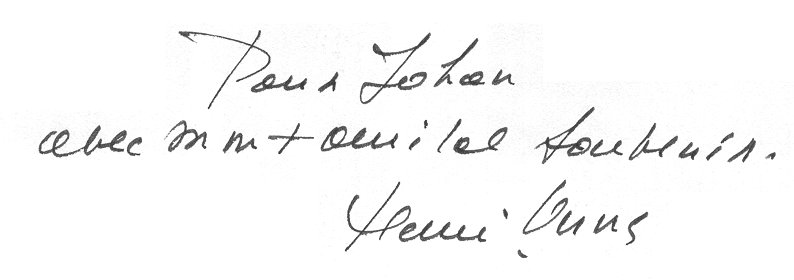 Pour Johan
avec mon amical souvenir.
Henri